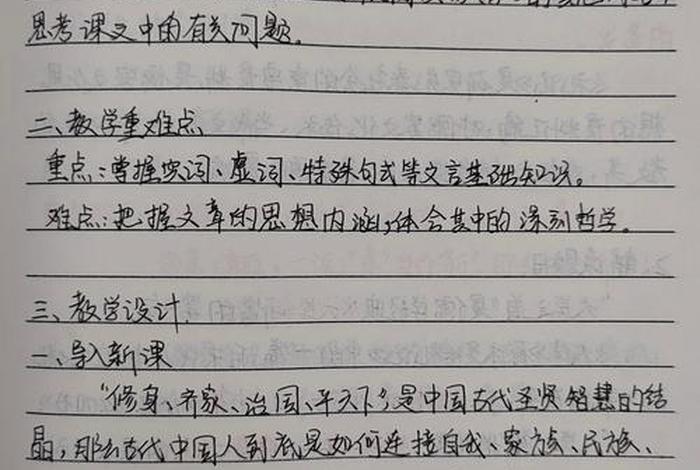 思考课文中的有关问题。
二、教学重难点
重点：掌握实词、虚词、特殊句式等文言基础知识。
难点：把握文章的思想内涵，体会其中的深刻哲学。
三、教学设计
一、导入新课
“修身、齐家、治国、平天下”是中国古代圣贤智慧的结
晶，那么古代中国人到底是如何连接自我、家族、民族、